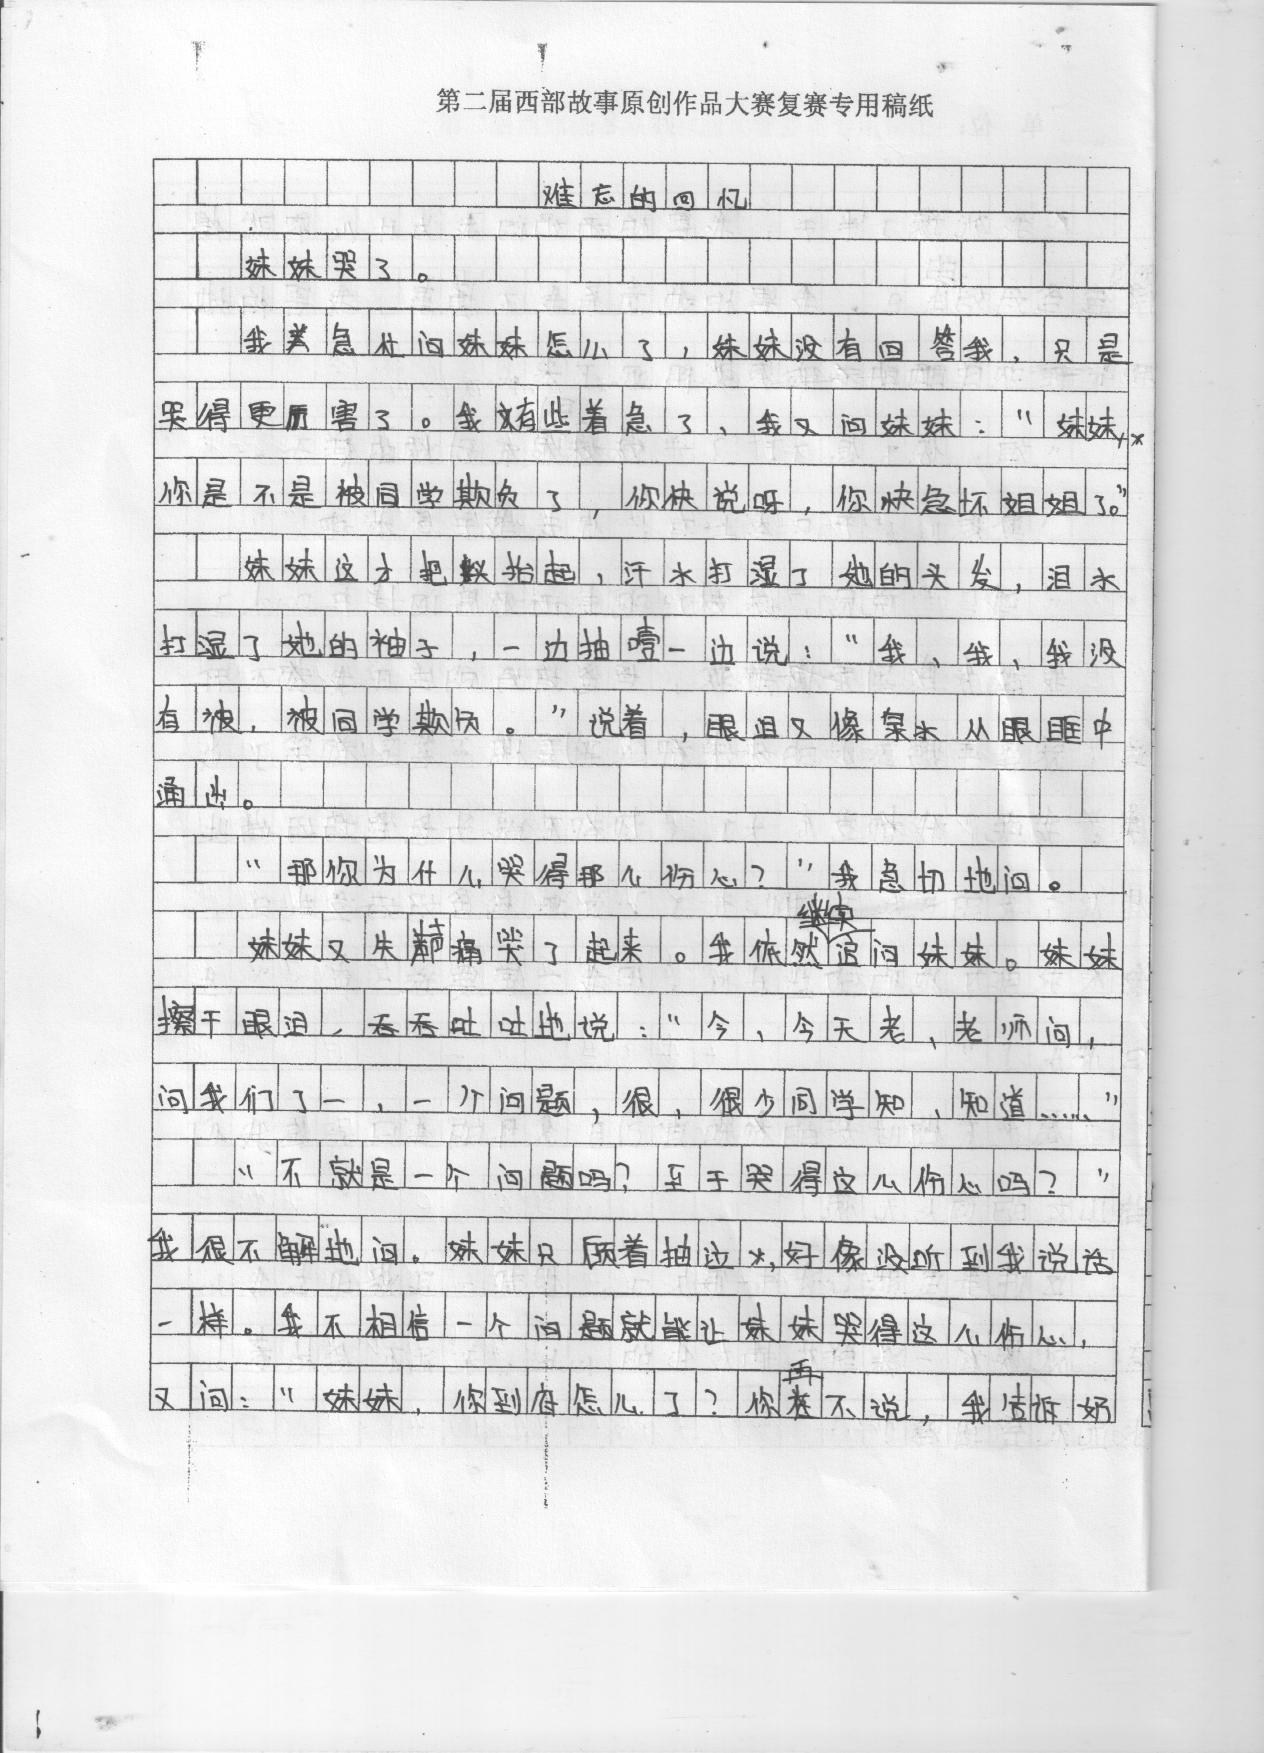 第二届西部故事原创作品大赛复赛专用稿纸
难忘的回忆
妹妹哭了。
我着急仕问妹妹怎么了，妹妹没有回答我，只是
哭得更厉害了。我有些着急了，我又问妹妹：“妹妹，
你是不是被同学欺负了，你快说呀，你快急坏姐姐了。”
妹妹这才把头抬起，汗水打湿了她的头发，泪水
打湿了她的袖子，一边抽噎一边说：“我、我、我没
有被，被同学欺负。”说着，眼泪又像泉水从眼眶中
涌出。
“那你为什么哭得那么伤心？”我急切地问。
妹妹又失声痛哭了起来。我依然继续追问妹妹。妹妹
擦干眼泪，吞吞吐吐地说：“今、今天老、老师问，
问我们了一，一个问题，很，很少同学知，知道……”
“不就是一个问题吗？至于哭得这么伤心吗？”
我很不解地问。妹妹只顾着抽泣，好像没听到我说话
一样。我不相信一个问题就能让妹妹哭得这么伤心，
又问：“妹妹，你到底怎么了？你再不说，我告诉奶